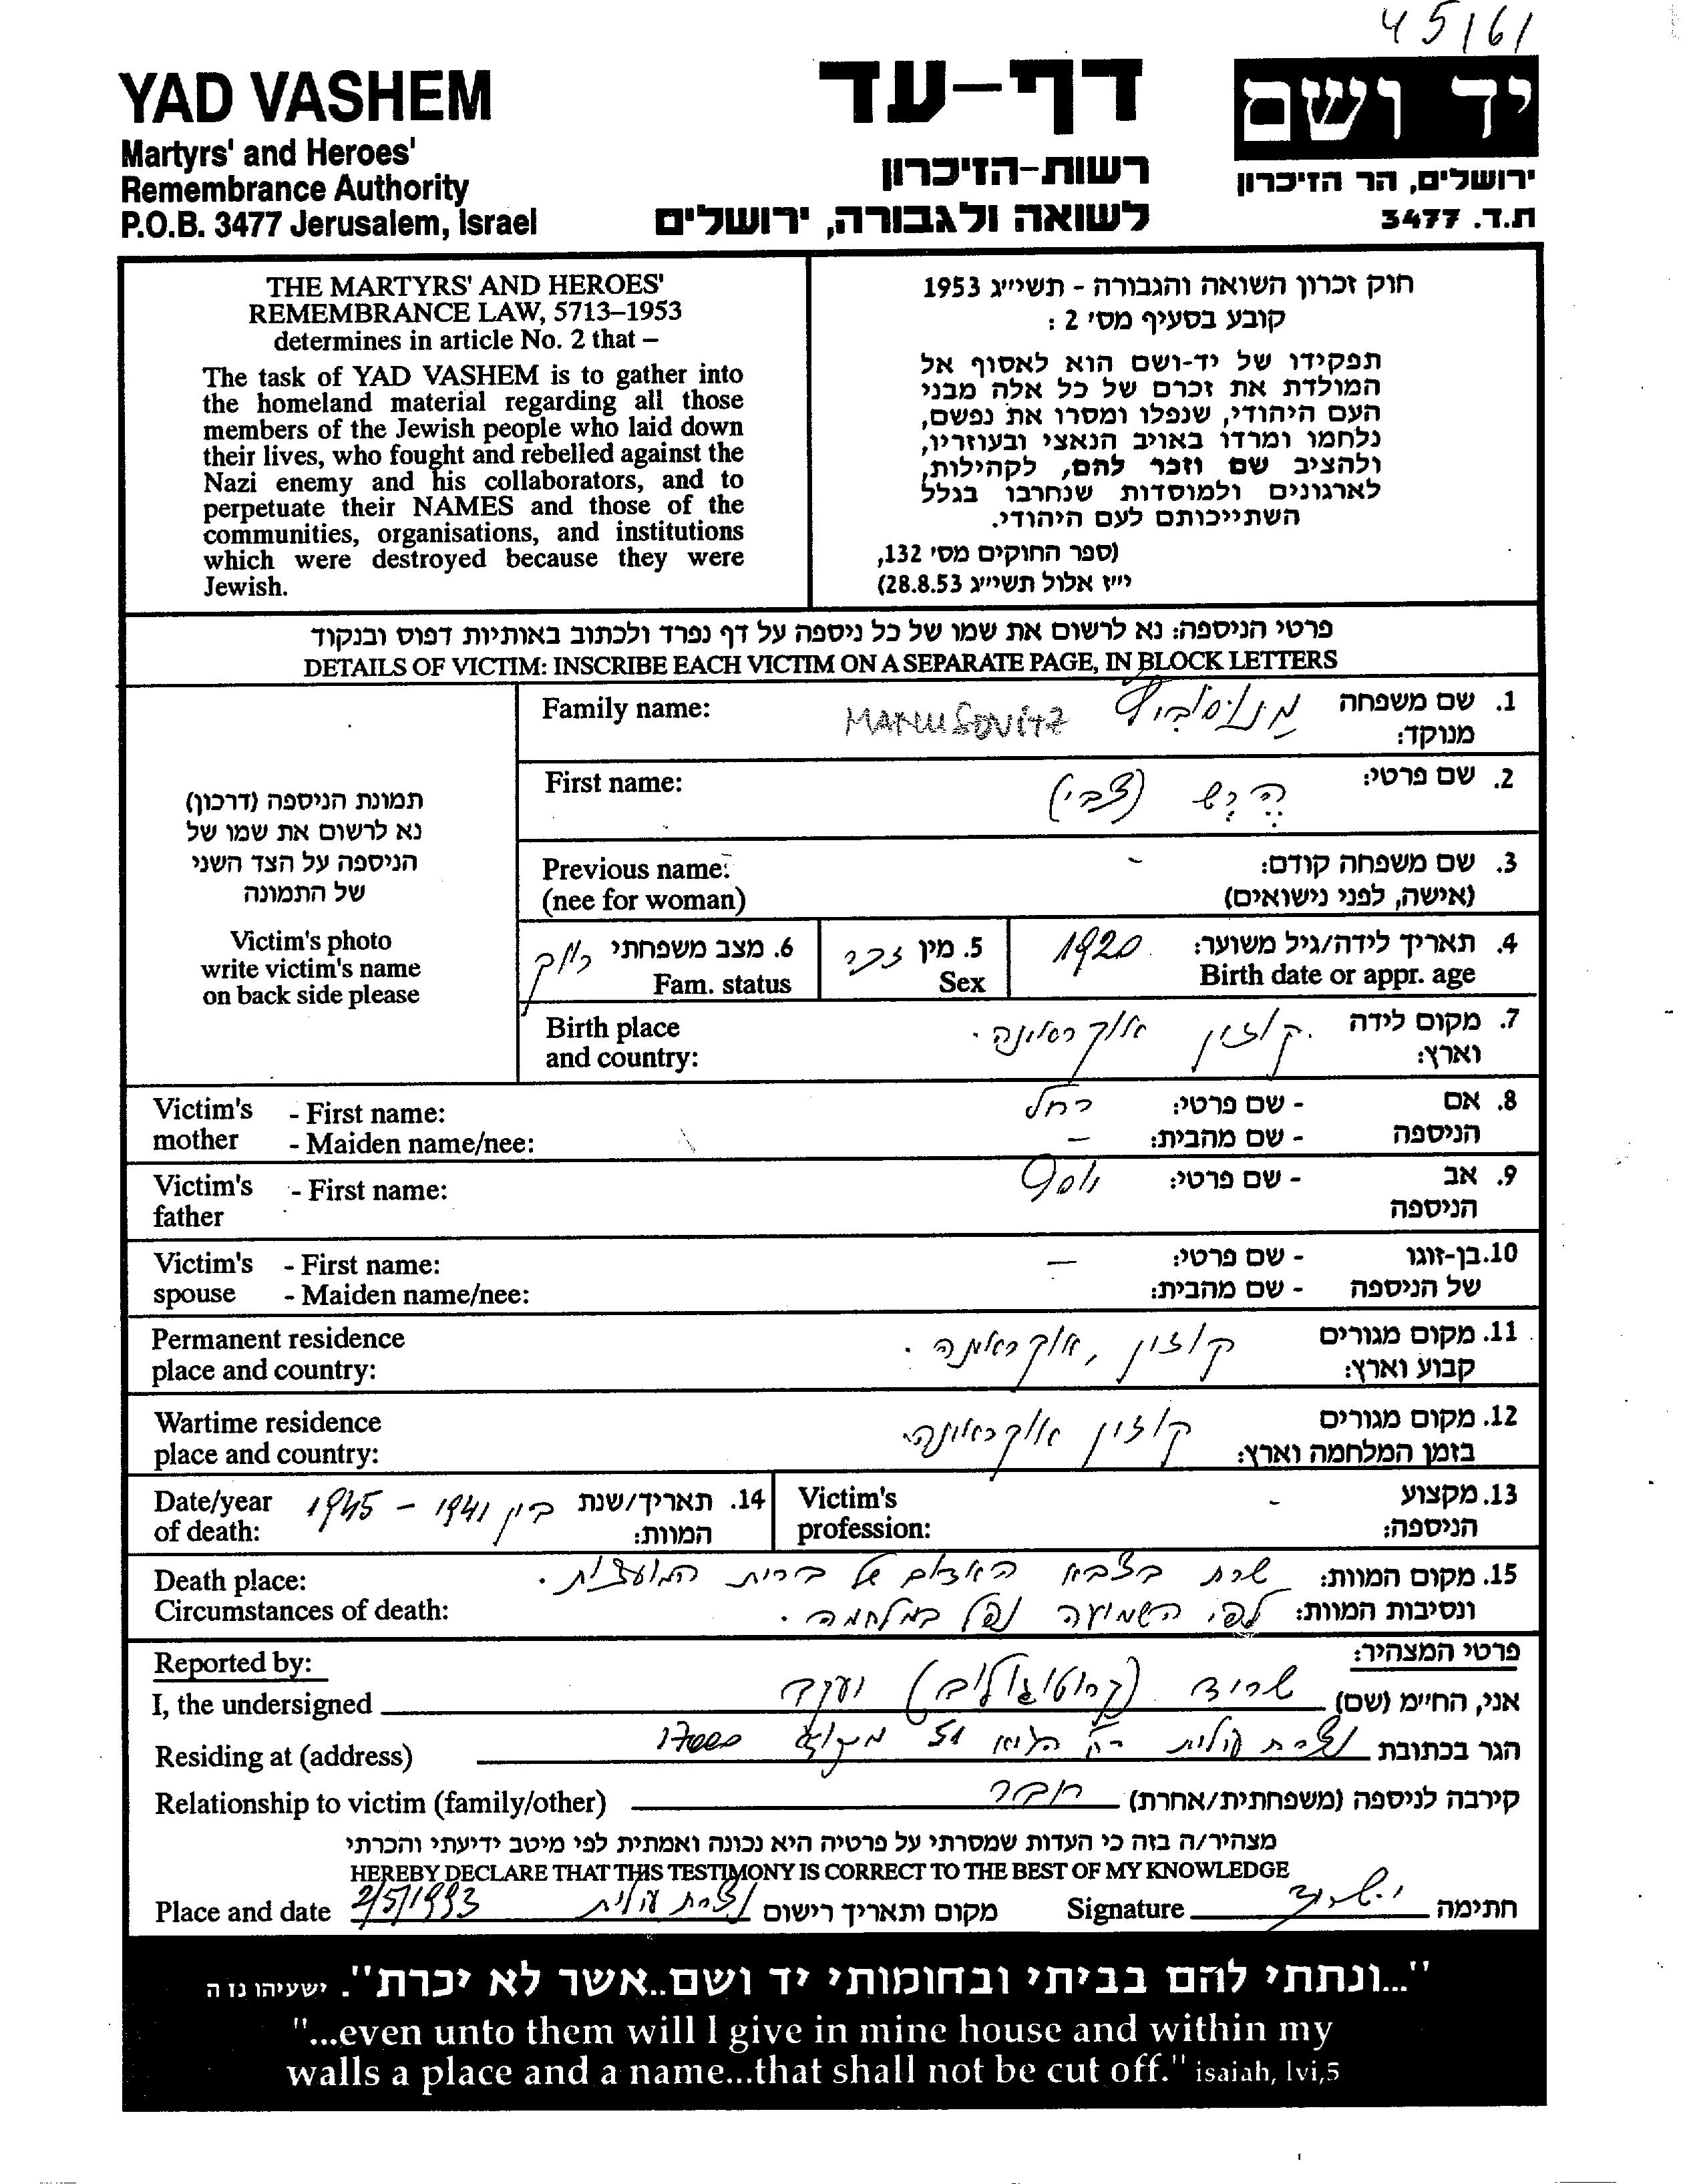 45161
YAD VASHEM
Martyrs' and Heroes'
Remembrance Authority
P.O.B. 3477 Jerusalem, Israel
דף-עד
רשות-הזיכרון
לשואה ולגבורה, ירושלים
יד ושם
ירושלים, הר הזיכרון
ת.ד. 3477
THE MARTYRS' AND HEROES'
REMEMBRANCE LAW, 5713–1953
determines in article No. 2 that –
The task of YAD VASHEM is to gather into
the homeland material regarding all those
members of the Jewish people who laid down
their lives, who fought and rebelled against the
Nazi enemy and his collaborators, and to
perpetuate their NAMES and those of the
communities, organisations, and institutions
which were destroyed because they were
Jewish.
חוק זכרון השואה והגבורה - תשי״ג 1953
קובע בסעיף מס׳ 2 :
תפקידו של יד-ושם הוא לאסוף אל
המולדת את זכרם של כל אלה מבני
העם היהודי, שנפלו ומסרו את נפשם,
נלחמו ומרדו באויב הנאצי ובעוזריו,
ולהציב שם וזכר להם, לקהילות,
לארגונים ולמוסדות שנחרבו בגלל
השתייכותם לעם היהודי.
(ספר החוקים מס׳ 132,
י״ז אלול תשי״ג 28.8.53)
פרטי הניספה: נא לרשום את שמו של כל ניספה על דף נפרד ולכתוב באותיות דפוס ובנקוד
DETAILS OF VICTIM: INSCRIBE EACH VICTIM ON A SEPARATE PAGE, IN BLOCK LETTERS
תמונת הניספה (דרכון)
נא לרשום את שמו של
הניספה על הצד השני
של התמונה
Victim's photo
write victim's name
on back side please
1. שם משפחה מנוסוביץ MANUSOVITZ Family name:
מנוקד:
2. שם פרטי: הרש (צבי) First name:
3. שם משפחה קודם: - Previous name:
(אישה, לפני נישואים) (nee for woman)
4. תאריך לידה/גיל משוער: 1920 5. מין זכר 6. מצב משפחתי רווק
Birth date or appr. age Sex Fam. status
7. מקום לידה קוזין אוקראינה. Birth place
וארץ: and country:
8. אם - שם פרטי: רחל Victim's - First name:
הניספה - שם מהבית: — mother - Maiden name/nee:
9. אב - שם פרטי: יוסף Victim's - First name:
הניספה father
10. בן-זוגו - שם פרטי: — Victim's - First name:
של הניספה - שם מהבית: spouse - Maiden name/nee:
11. מקום מגורים קוזין, אוקראינה. Permanent residence
קבוע וארץ: place and country:
12. מקום מגורים קוזין אוקראינה. Wartime residence
בזמן המלחמה וארץ: place and country:
13. מקצוע - Victim's
הניספה: profession:
14. תאריך/שנת בין 1941 - 1945 Date/year
המוות: of death:
15. מקום המוות: שרת בצבא האדום של ברית המועצות. Death place:
ונסיבות המוות: לפי השמועה נפל במלחמה. Circumstances of death:
פרטי המצהיר: Reported by:
אני, החי״מ (שם) שריד יעקב I, the undersigned
הגר בכתובת נצרת עילית 51 17000 Residing at (address)
קירבה לניספה (משפחתית/אחרת) חבר Relationship to victim (family/other)
מצהיר/ה בזה כי העדות שמסרתי על פרטיה היא נכונה ואמתית לפי מיטב ידיעתי והכרתי
HEREBY DECLARE THAT THIS TESTIMONY IS CORRECT TO THE BEST OF MY KNOWLEDGE
חתימה י. שריד Signature מקום ותאריך רישום נצרת עילית 2/5/1993 Place and date
"...ונתתי להם בביתי ובחומותי יד ושם..אשר לא יכרת". ישעיהו נז ה
"...even unto them will I give in mine house and within my
walls a place and a name...that shall not be cut off." isaiah, lvi,5